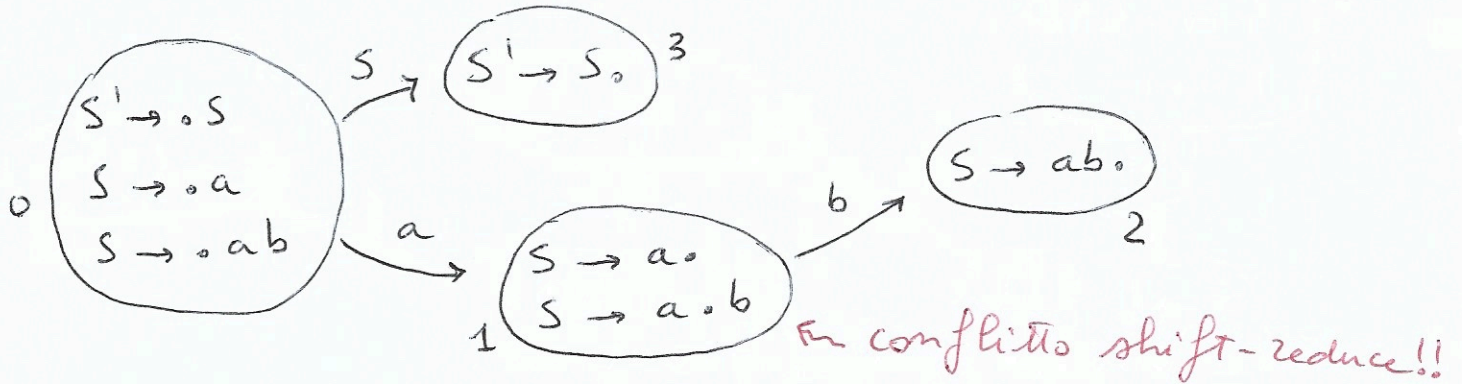 S' → S. 3
S
S' → .S
S → .a
S → .ab
0
a
S → a.
S → a.b
1
b
S → ab.
2
conflitto shift-reduce!!